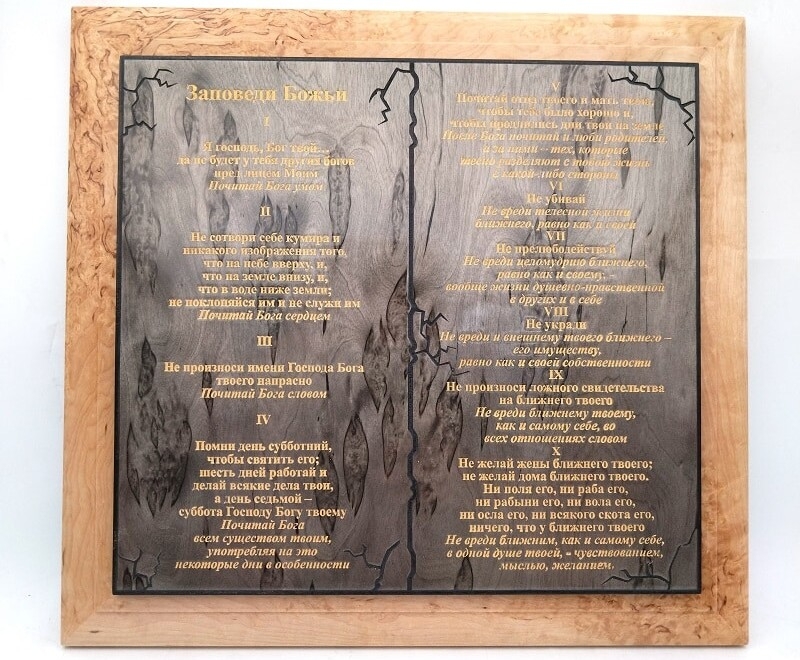 Заповеди Божьи
I
Я господь, Бог твой...
да не будет у тебя других богов
пред лицем Моим
Почитай Бога умом
II
Не сотвори себе кумира и
никакого изображения того,
что на небе вверху, и,
что на земле внизу, и,
что в воде ниже земли;
не поклоняйся им и не служи им
Почитай Бога сердцем
III
Не произноси имени Господа Бога
твоего напрасно
Почитай Бога словом
IV
Помни день субботний,
чтобы святить его;
шесть дней работай и
делай всякие дела твои,
а день седьмой –
суббота Господу Богу твоему
Почитай Бога
всем существом твоим,
употребляя на это
некоторые дни в особенности
V
Почитай отца твоего и мать твою,
чтобы тебе было хорошо и,
чтобы продлились дни твои на земле
После Бога почитай и люби родителей,
а за ними – тех, которые
тесно разделяют с тобой жизнь
с какой-либо стороны
VI
Не убивай
Не вреди телесной жизни
ближнего, равно как и своей
VII
Не прелюбодействуй
Не вреди целомудрию ближнего,
равно как и своему, –
вообще жизни душевно-нравственной
в других и в себе
VIII
Не укради
Не вреди и внешнему твоего ближнего –
его имуществу,
равно как и своей собственности
IX
Не произноси ложного свидетельства
на ближнего твоего
Не вреди ближнему твоему,
как и самому себе, во
всех отношениях словом
X
Не желай жены ближнего твоего;
не желай дома ближнего твоего.
Ни поля его, ни раба его,
ни рабыни его, ни вола его,
ни осла его, ни всякого скота его,
ничего, что у ближнего твоего
Не вреди ближним, как и самому себе,
в одной душе твоей, - чувствованием,
мыслью, желанием.